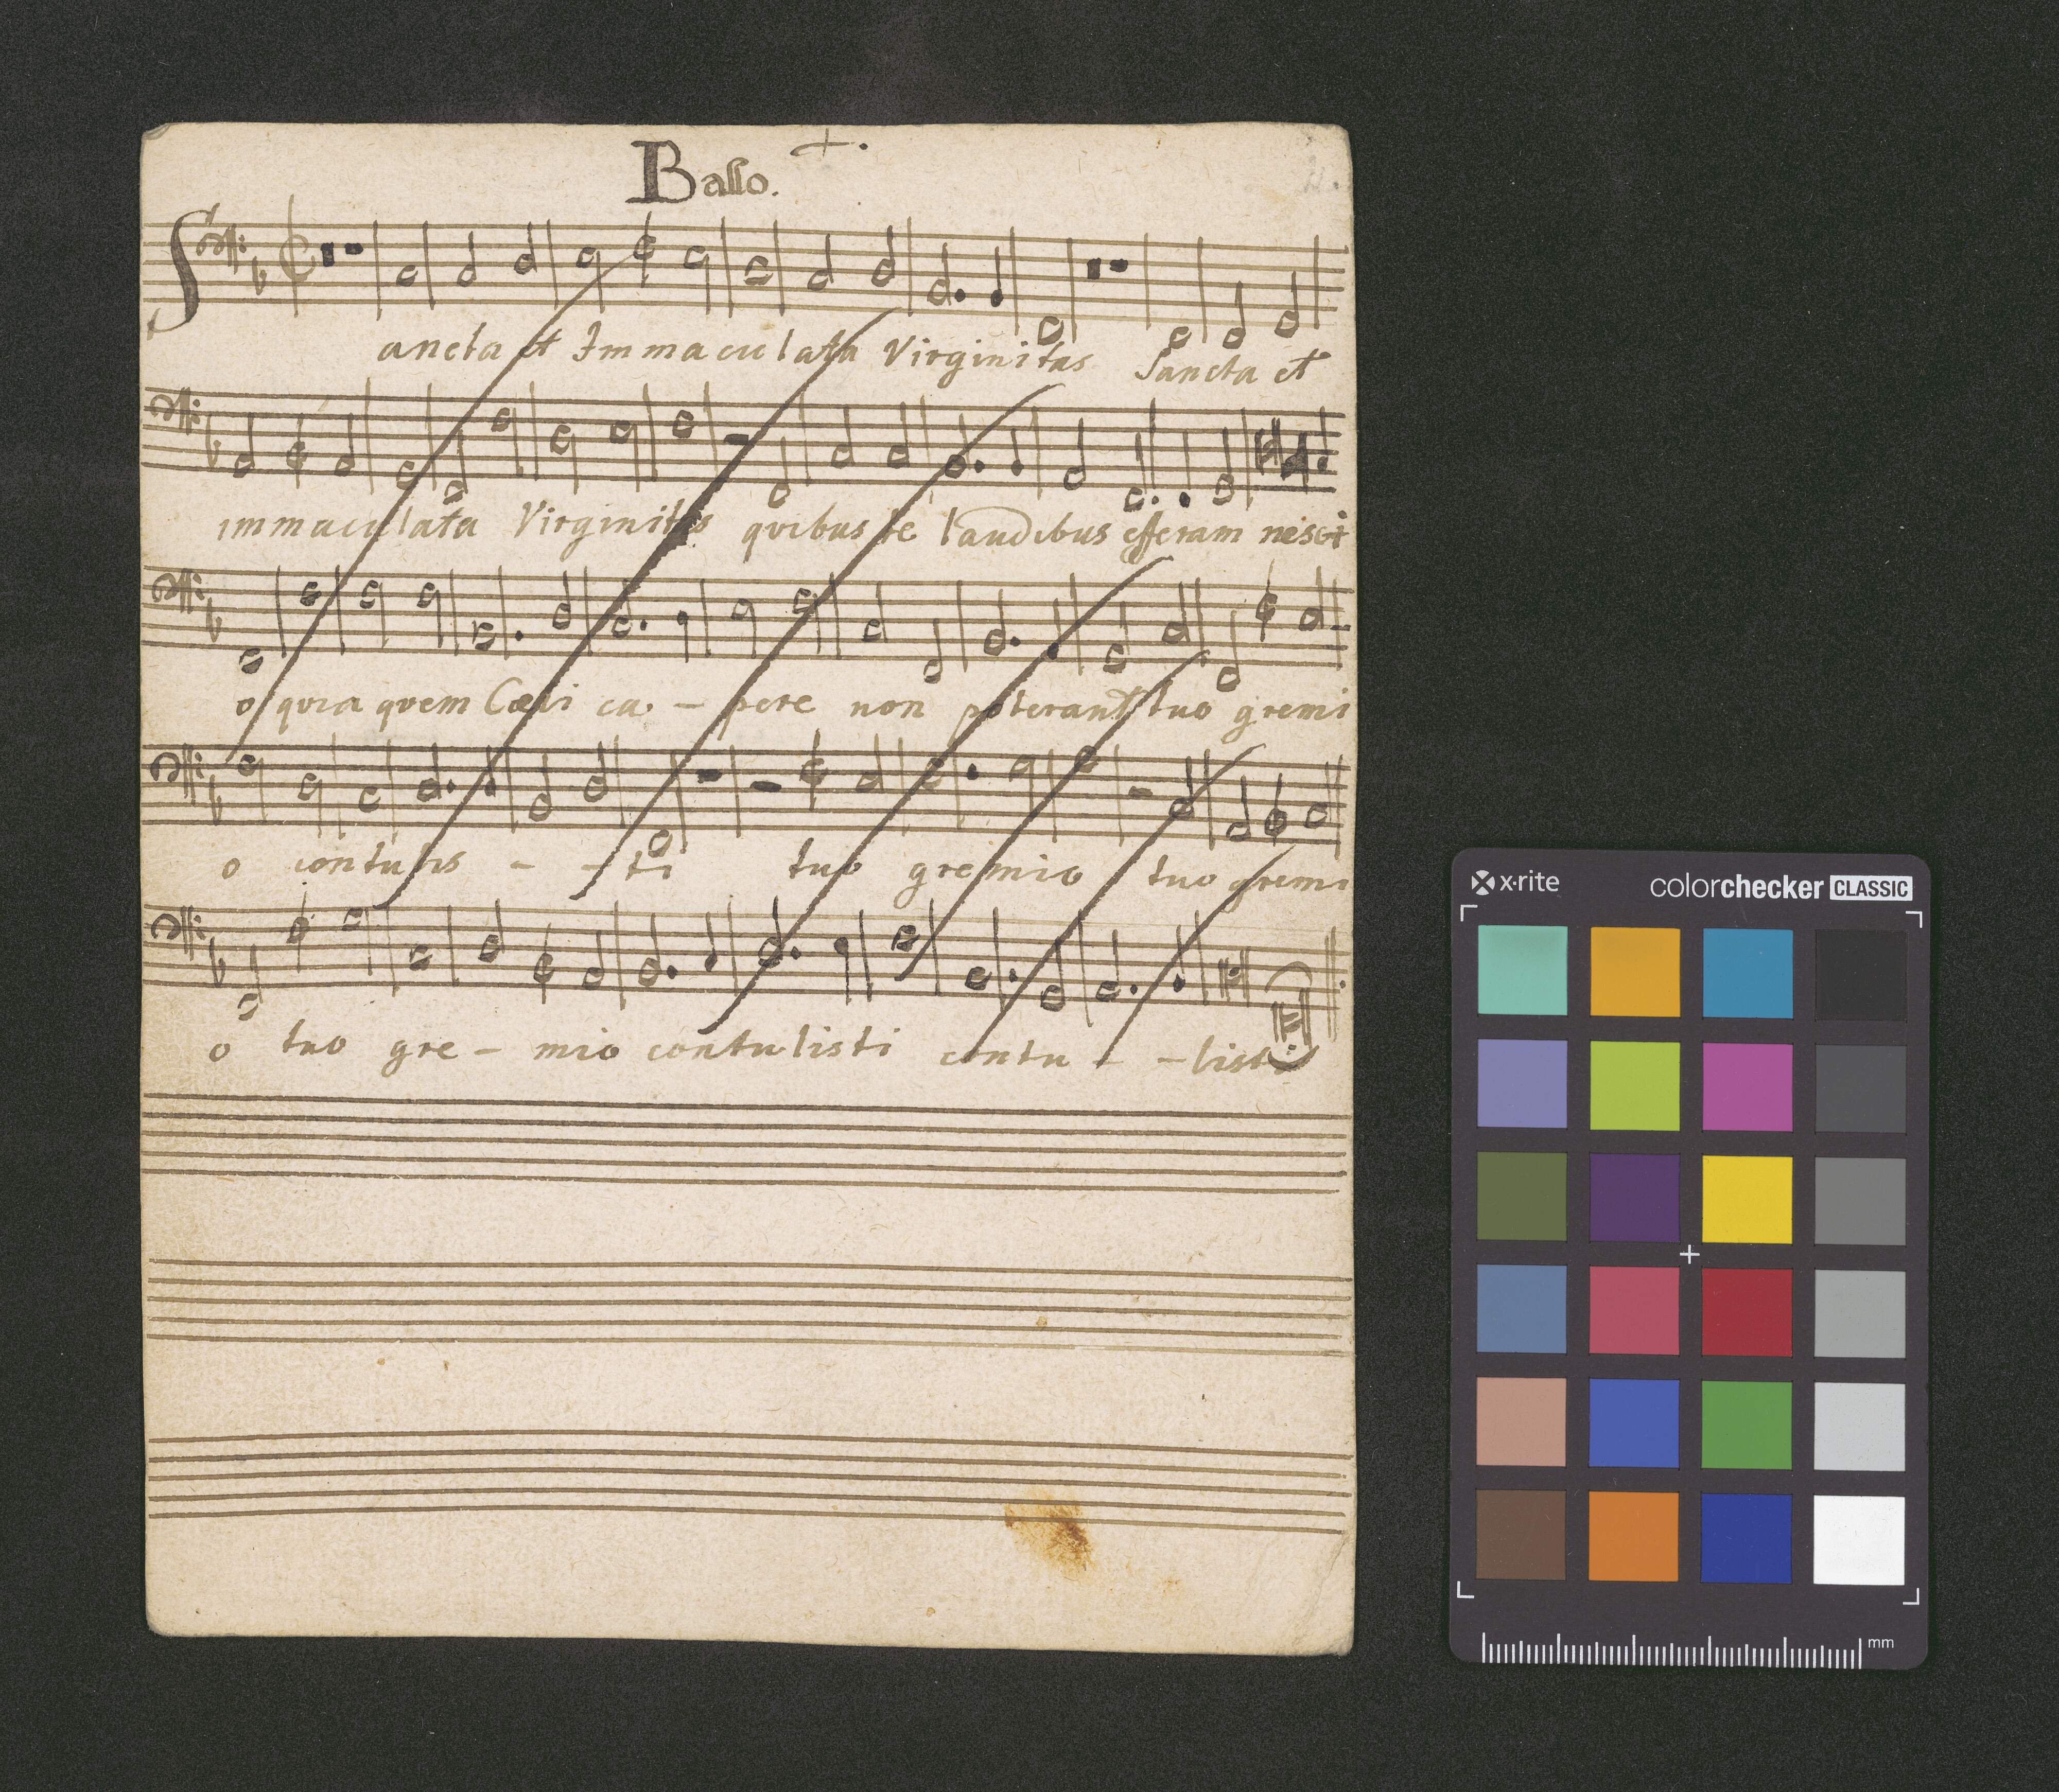 Basso.
Sancta et Immaculata Virginitas Sancta et
immaculata Virginitas quibus te laudibus efferam nesci
o quia quem Cæli ca - pere non poterant tuo gremi
o contulis - - ti tuo gremio tuo gremi
o tuo gre - mio contulisti contu - - listi
x·rite colorchecker CLASSIC
mm